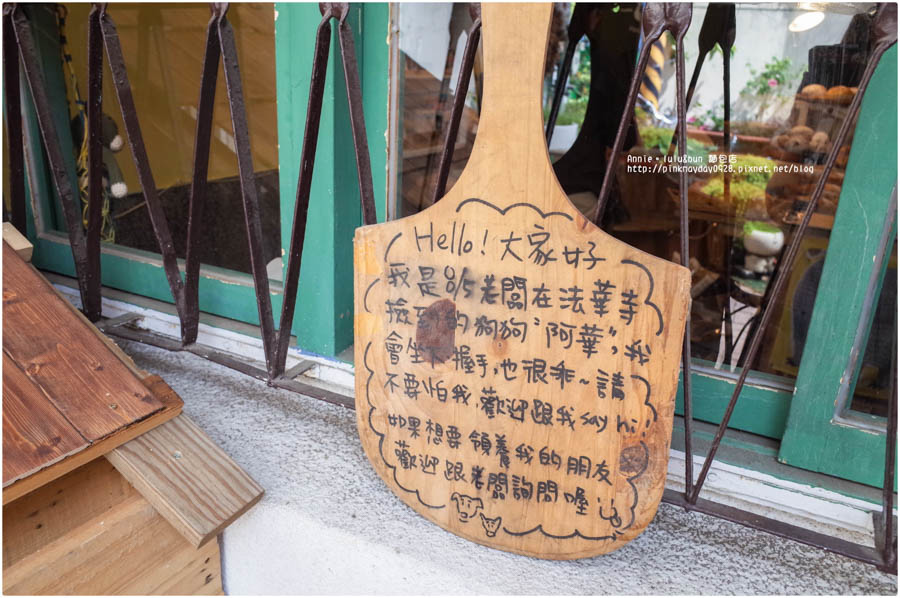 Annie。lulu&bun 麵包店
http://pinknayday0428.pixnet.net/blog
Hello! 大家好
我是8/5老闆在法華寺
撿到的狗狗"阿華", 我
會坐下握手,也很乖~請
不要怕我,歡迎跟我say hi!!
如果想要領養我的朋友
歡迎跟老闆詢問喔